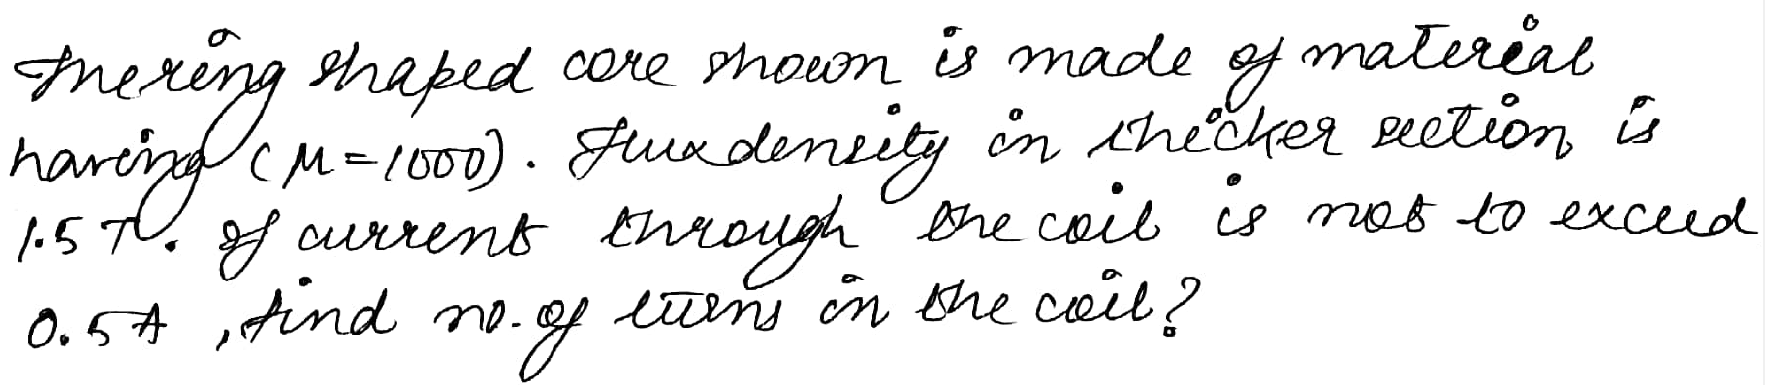 The ring shaped core shown is made of material
having (μ=1000). Flux density in thicker section is
1.5 T. If current through the coil is not to exceed
0.5A, find no. of turns in the coil?